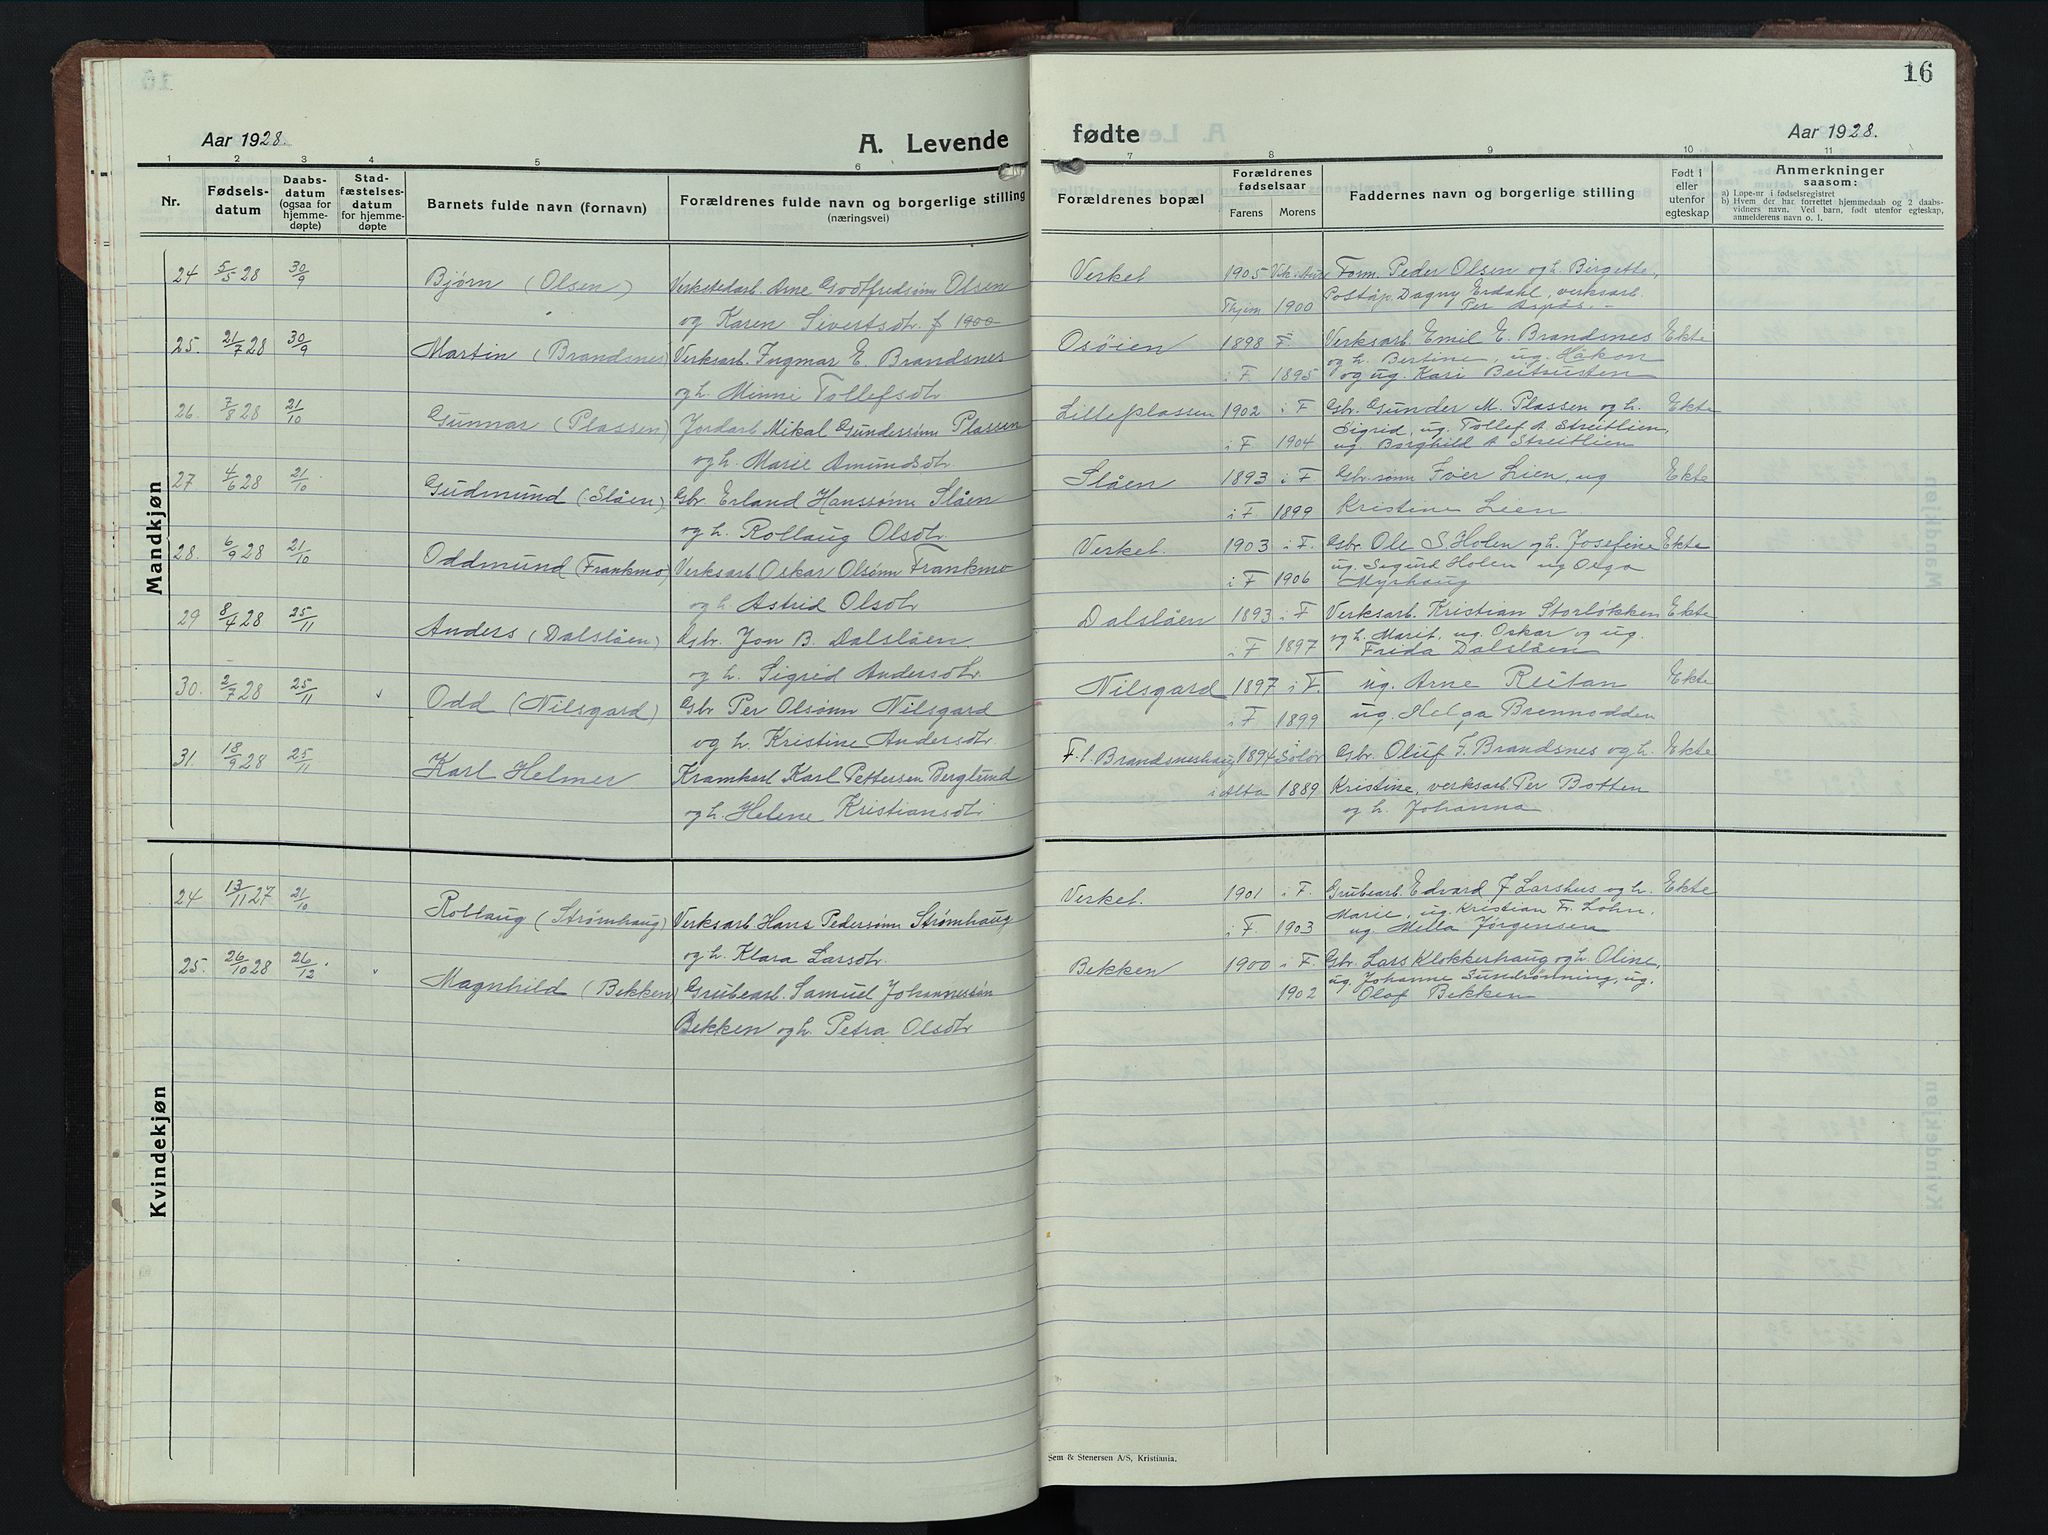 16
Aar 1928.
A. Levende
fødte
Aar 1928.
1 2 3 4 5 6 7 8 9 10 11
Nr.
Fødsels-
datum
Daabs-
datum
(ogsaa for
hjemme-
døpte)
Stad-
fæstelses-
datum
for hjemme-
døpte
Barnets fulde navn (fornavn)
Forældrenes fulde navn og borgerlige stilling
(næringsvei)
Forældrenes bopæl
Forældrenes
fødselsaar
Farens Morens
Faddernes navn og borgerlige stilling
Født i
eller
utenfor
egteskap
Anmerkninger
saasom:
a) Løpe-nr i fødselsregistret
b) Hvem der har forrettet hjemmedaab og 2 daabs-
vidners navn. Ved barn, født utenfor egteskap,
anmelderens navn o. l.
Mandkjøn
24 5/5 28 30/9 Bjørn (Olsen) Verkstedarb. Arne Godtfredsønn Olsen
og Karen Sivertsdtr. f 1900
Verket 1905 Form. Peder Olsen og h. Birgette,
Tynn 1900 Poståp. Dagny Erdahl, verksarb.
25. 21/7 28 30/9 Martin (Brandsnes) Verksarb. Ingmar E. Brandsnes
og h. Minni Tollefsdtr
Osøien 1898 F. Verksarb. Emil E. Brandsnes Ekte
og h. Bertine, ug. Håkon
i F. 1895 og ug. Kari
26. 7/8 28 21/10 Gunnar (Plassen) Jordarb Mikal Gundersønn Plassen
og h. Marie Amundsdtr.
Lilleplassen 1902 i F Gbr. Gunder M. Plassen og h. Ekte
Sigrid, ug. Tollef A Streitlien,
i F. 1904 ug. Borghild A Streitlien
27 4/6 28 21/10 Gudmund (Slåen) Gbr. Erland Hanssønn Slåen
og h. Rollaug Olsdtr.
Slåen 1893 i F Gbr. sønn Iver Lien, ug Ekte
i F. 1899 Kristine Leen.
28. 6/9 28 21/10 Oddmund (Frankmo) Verksarb Oskar Olsønn Frankmo
og h. Astrid Olsdtr
Verket. 1903 i F. Gbr. Ole S. Holen og h. Josefine Ekte
ug. Sigurd Holen ug Olga
i F 1906 Myrhaug
29 8/4 28 25/11 Anders (Dalslåen) Gbr. Jon B. Dalslåen
og h. Sigrid Andersdtr.
Dalslåen 1893 i F Verksarb. Kristian Storløkken Ekte
og h. Marit, ug. Oskar og ug.
i F 1897 Frida Dalslåen
30. 2/7 28 25/11 Odd (Nilsgard) Gbr Per Olsønn Nilsgard
og h. Kristine Andersdtr.
Nilsgard 1897 i F. ug. Arne Reitan Ekte
i F 1899 ug. Helga Brennodden
31. 18/9 28 25/11 Karl Helmer Kramkarl Karl Pettersen Berglund
og h. Helene Kristiansdtr
F. t. Brandsneshaug 1894 i Solør Gbr. Oluf F. Brandsnes og h. Ekte
i Alta 1889 Kristine, verksarb. Per Botten
og h. Johanna
Kvindekjøn
24 13/11 27 21/10 Rollaug (Strømhaug) Verksarb Hans Pedersønn Strømhaug
og h. Klara Larsdtr.
Verket. 1901 i F. Grubearb. Edvard J Larshus og h. Ekte
Marie, ug. Kristian Fr. Lohn,
i F. 1903 ug. Milla Jørgensen
25. 26/10 28 26/12 Magnhild (Bekken) Grubearb. Samuel Johannessøn
Bekken og h. Petra Olsdtr
Bekken 1900 i F. Gbr. Lars Klokkerhaug og h. Oline,
ug. Johanne Sundrønning, ug.
1902 Olof Bekken
Sem & Stenersen A/S, Kristiania.